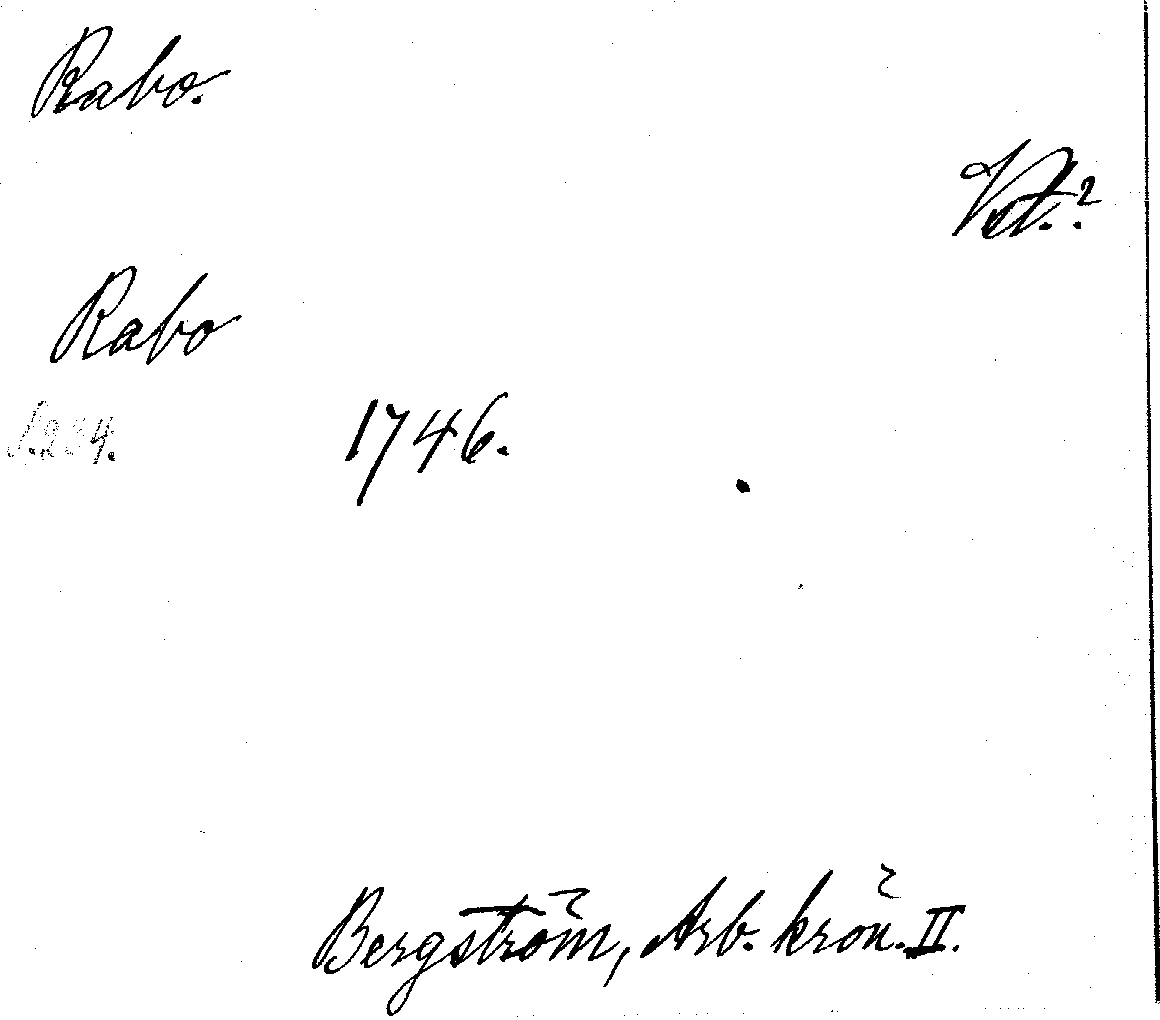 Rabo.
Vst.?
Rabo
S. 234. 1746.
Bergström, Arb. krön. II.